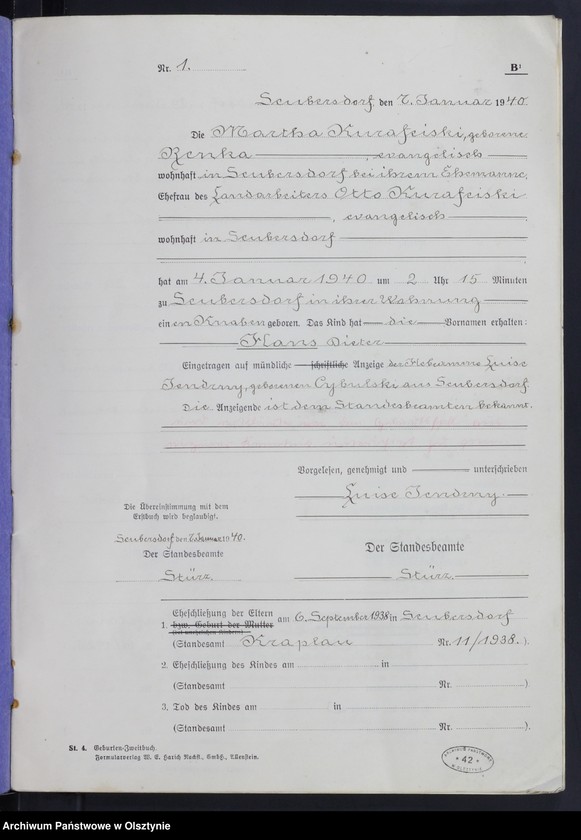 Nr. 1. B¹
Seubersdorf, den 7. Januar 1940
Die Martha Kurafeiski, geborene
Renka, evangelisch
wohnhaft in Seubersdorf bei ihrem Ehemanne,
Ehefrau des Landarbeiters Otto Kurafeiski
, evangelisch,
wohnhaft in Seubersdorf
hat am 4. Januar 1940 um 2 Uhr 15 Minuten
zu Seubersdorf in ihrer Wohnung
einen Knaben geboren. Das Kind hat die Vornamen erhalten:
Hans Dieter
Eingetragen auf mündliche schriftliche Anzeige der Hebamme Luise
Jendrny, geborenen Cybulski aus Seubersdorf
Die Anzeigende ist dem Standesbeamten bekannt.
Vorgelesen, genehmigt und unterschrieben
Luise Jendrny
Die Übereinstimmung mit dem
Erstbuch wird beglaubigt.
Seubersdorf, den 7. Januar 1940.
Der Standesbeamte
Stürz
Der Standesbeamte
Stürz
1. Eheschließung der Eltern am 6. September 1938 in Seubersdorf
bzw. Geburt der Mutter
(Standesamt Kraplau Nr. 11/1938.).
2. Eheschließung des Kindes am in
(Standesamt Nr. )
3. Tod des Kindes am in
(Standesamt Nr. ).
St. 4. Geburten-Zweitbuch.
Formularverlag W. E. Harich Nachfl., GmbH., Allenstein.
ARCHIWUM PAŃSTWOWE
* 42 *
W OLSZTYNIE
Archiwum Państwowe w Olsztynie